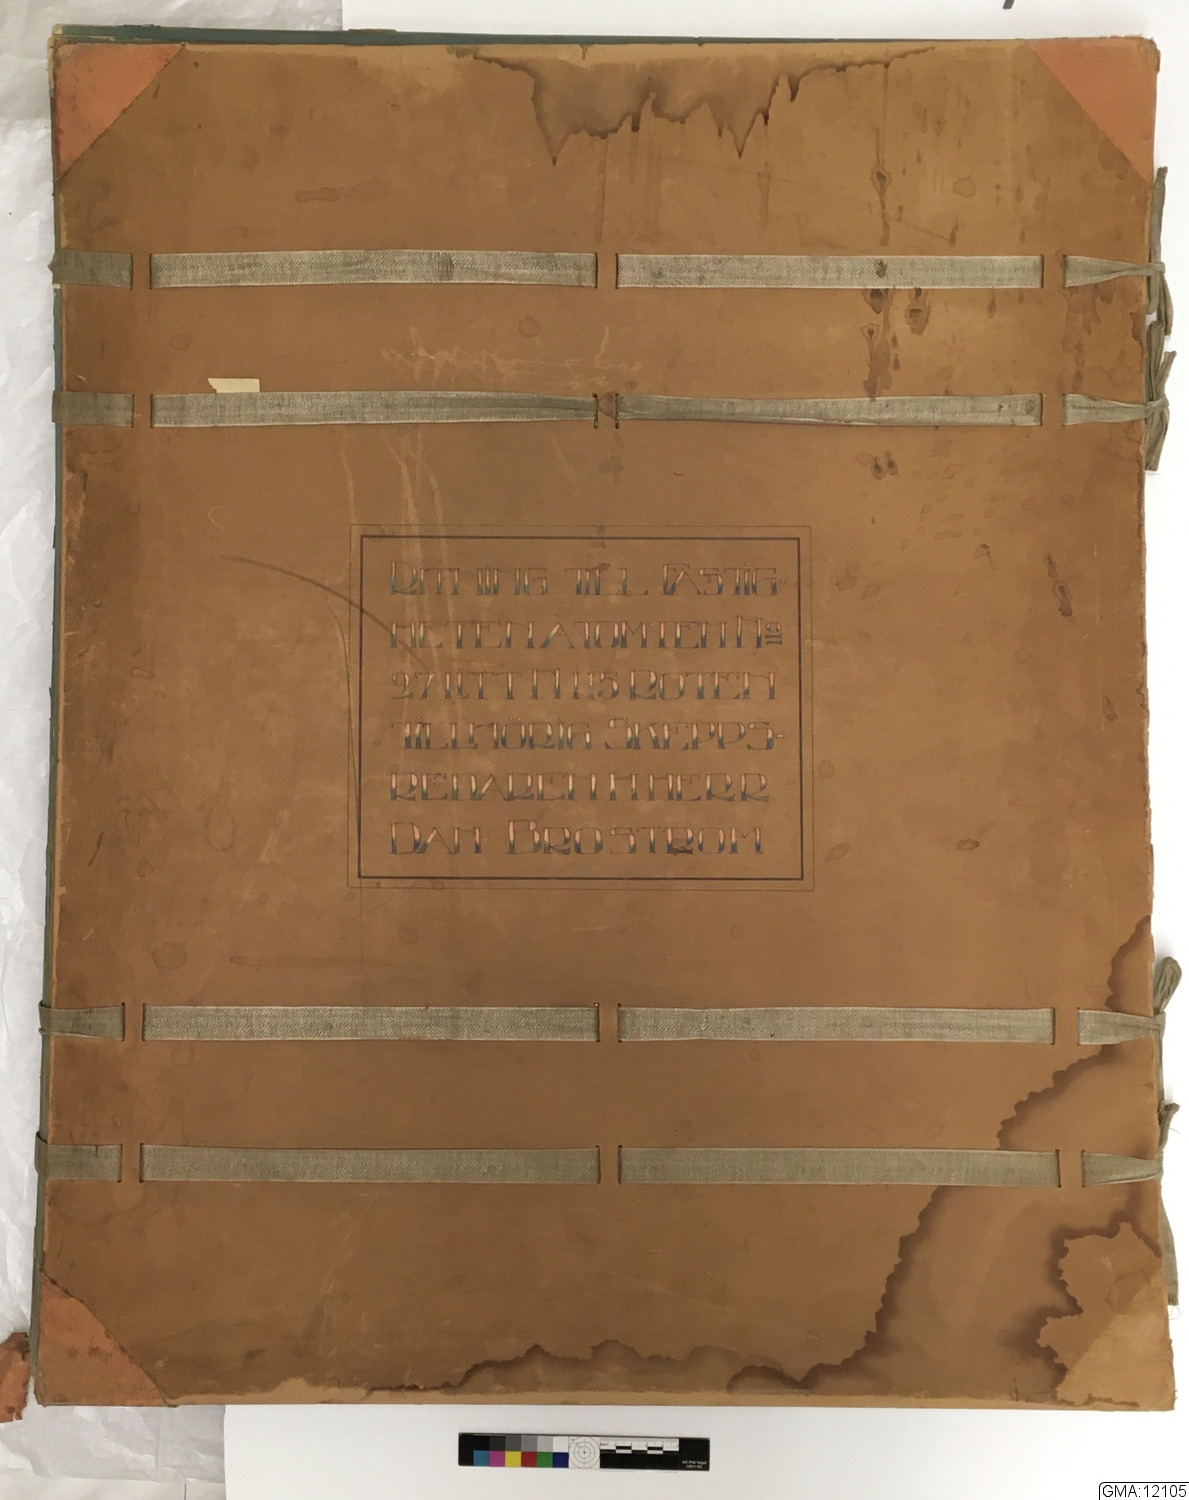 RITNING TILL FASTIG-
HETEN Å TOMTEN No
27 LITT N 115 ROTEN
TILLHÖRIG SKEPPS-
REDAREN H HERR
DAN BROSTRÖM
GMA:12105